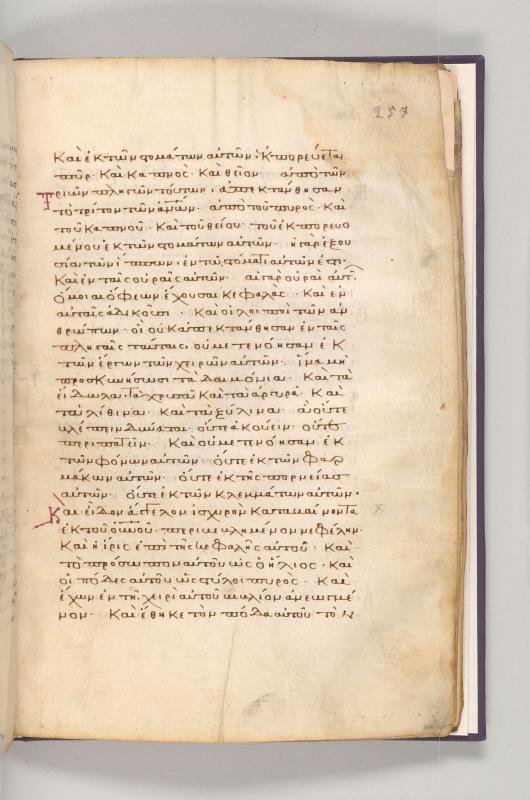 257
Καὶ ἐκ τῶν στομάτων αὐτῶν, ἐκπορεύεται
πῦρ· Καὶ Καπνος· Καὶ θεῖον· ἀπὸ τῶν
τριῶν πληγῶν τούτων, ἀπεκτάνθησαν
τὸ τρίτον τῶν ἀνων· ἀπὸ τοῦ πυρὸς· Καὶ
τοῦ Καπνοῦ· Καὶ τοῦ θείου· τοῦ ἐκπορευο
μένου ἐκ τῶν στομάτων αὐτῶν· ἡ γὰρ ἐξου
σία τῶν ἵππων, ἐν τῶ στόματι αὐτῶν ἐστι·
Καὶ ἐν ταῖς οὐραῖς αὐτῶν· αἱ γὰρ οὐραὶ αὐτῶν
ὅμοιαι ὄφεων ἔχουσαι Κεφαλὰς· Καὶ ἐν
αὐταῖς ἀδικοῦσι· Καὶ οἱ λοιποὶ τῶν ἀν
θρώπων· οἱ οὐκ ἀπεκτάνθησαν ἐν ταῖς
πληγαῖς ταύταις, οὐ μετενόησαν ἐκ
τῶν ἔργων τῶν χειρῶν αὐτῶν· ἵνα μὴ
προσκυνήσωσι τὰ δαιμόνια· Καὶ τὰ
εἴδωλα τὰ χρυσᾶ Καὶ τὰ ἀργυρᾶ· Καὶ
τὰ λίθινα· Καὶ τὰ ξύλινα· ἃ οὔτε
βλέπειν δύναται· οὔτε ἀκούειν· οὔτε
περιπατεῖν· Καὶ οὐ μετενόησαν ἐκ
τῶν φόνων αὐτῶν· οὔτε ἐκ τῶν φαρ
μάκων αὐτῶν· οὔτε ἐκ τῆς πορνείας
αὐτῶν· οὔτε ἐκ τῶν Κλεμμάτων αὐτῶν·
Και εἶδον ἄγγελον ἰσχυρὸν Καταβαίνοντα
ἐκ τοῦ οὐνοῦ· περιβεβλημένον νεφέλην·
Καὶ ἡ ἶρις ἐπὶ τῆς Κεφαλῆς αὐτοῦ· Καὶ
τὸ πρόσωπον αὐτοῦ ὡς ὁ ἥλιος· Καὶ
οἱ πόδες αὐτοῦ ὡς στύλοι πυρος· Καὶ
ἔχων ἐν τῆ χειρὶ αὐτοῦ βιβλίον ἀνεωγμέ
νον· Καὶ ἔθηκε τὸν πόδα αὐτοῦ τὸν